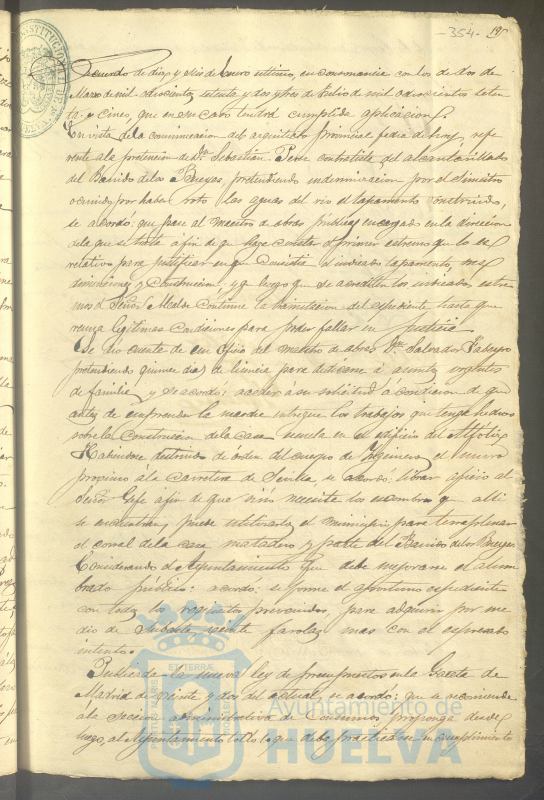 -354- 195
acuerdo de diez y seis de Enero último, en consonancia con los de dos de
Marzo de mil ochocientos setenta y dos y tres de Julio de mil ochocientos seten
ta y cinco, que en su caso tendrá cumplida aplicación.
En vista de la comunicacion del arquitecto provincial fecha de hoy, refe
rente a la pretencion de Dn. Sebastian contratista del alcantarillado
del Barrido de las Bueyas, pretendiendo indemnizacion por el Siniestro
ocurrido por haber roto las aguas del rio el tapamento construido,
se acordó: que pase al maestro de obras públicas encargado en la direccion
de la que se trata a fin de que haga constar el primer estremo que lo es
relativo para justificar en que consistia el indicado tapamento, sus
dimenciones y construccion, y que luego que se acrediten los indicados estre
mos el Señor Alcalde continue la tramitacion del espediente hasta que
reuna legítimas condiciones para poder fallar en justicia
Se dió cuenta de un oficio del maestro de obras Dn. Salvador
pretendiendo quince dias de licencia para dedicarse á asuntos urgentes
de familia y se acordó: acceder á su solicitud á condicion de que
antes de emprender la marcha entregue los trabajos que tenga hechos
sobre la construccion de la casa escuela en el edificio del Alfolix
Habiendose destruido de orden del cuerpo de Ingenieros el muro
proximo á la Carretera de Sevilla, se acordó: librar oficio al
Señor Gefe afin de que si no necesita los escombros que alli
se encuentran, pueda utilizarlos el municipio para terraplenar
el corral de la casa matadero y parte del Barrido de las Bueyas
Considerando el Ayuntamiento que debe mejorarse el alum
brado público: acordó: se forme el oportuno espediente
con todos los requisitos prevenidos, para adquirir por me
dio de Subasta veinte farolas mas con el espresado
intento.
Publicada la nueva ley de presupuestos en la Gaceta de
Madrid de veinte y dos del actual, se acordó: que se recomiende
á la seccion administrativa de Consumos proponga desde
luego, al Ayuntamiento todo lo que deba practicarse en cumplimiento
ET TERRAE
Ayuntamiento de
HUELVA